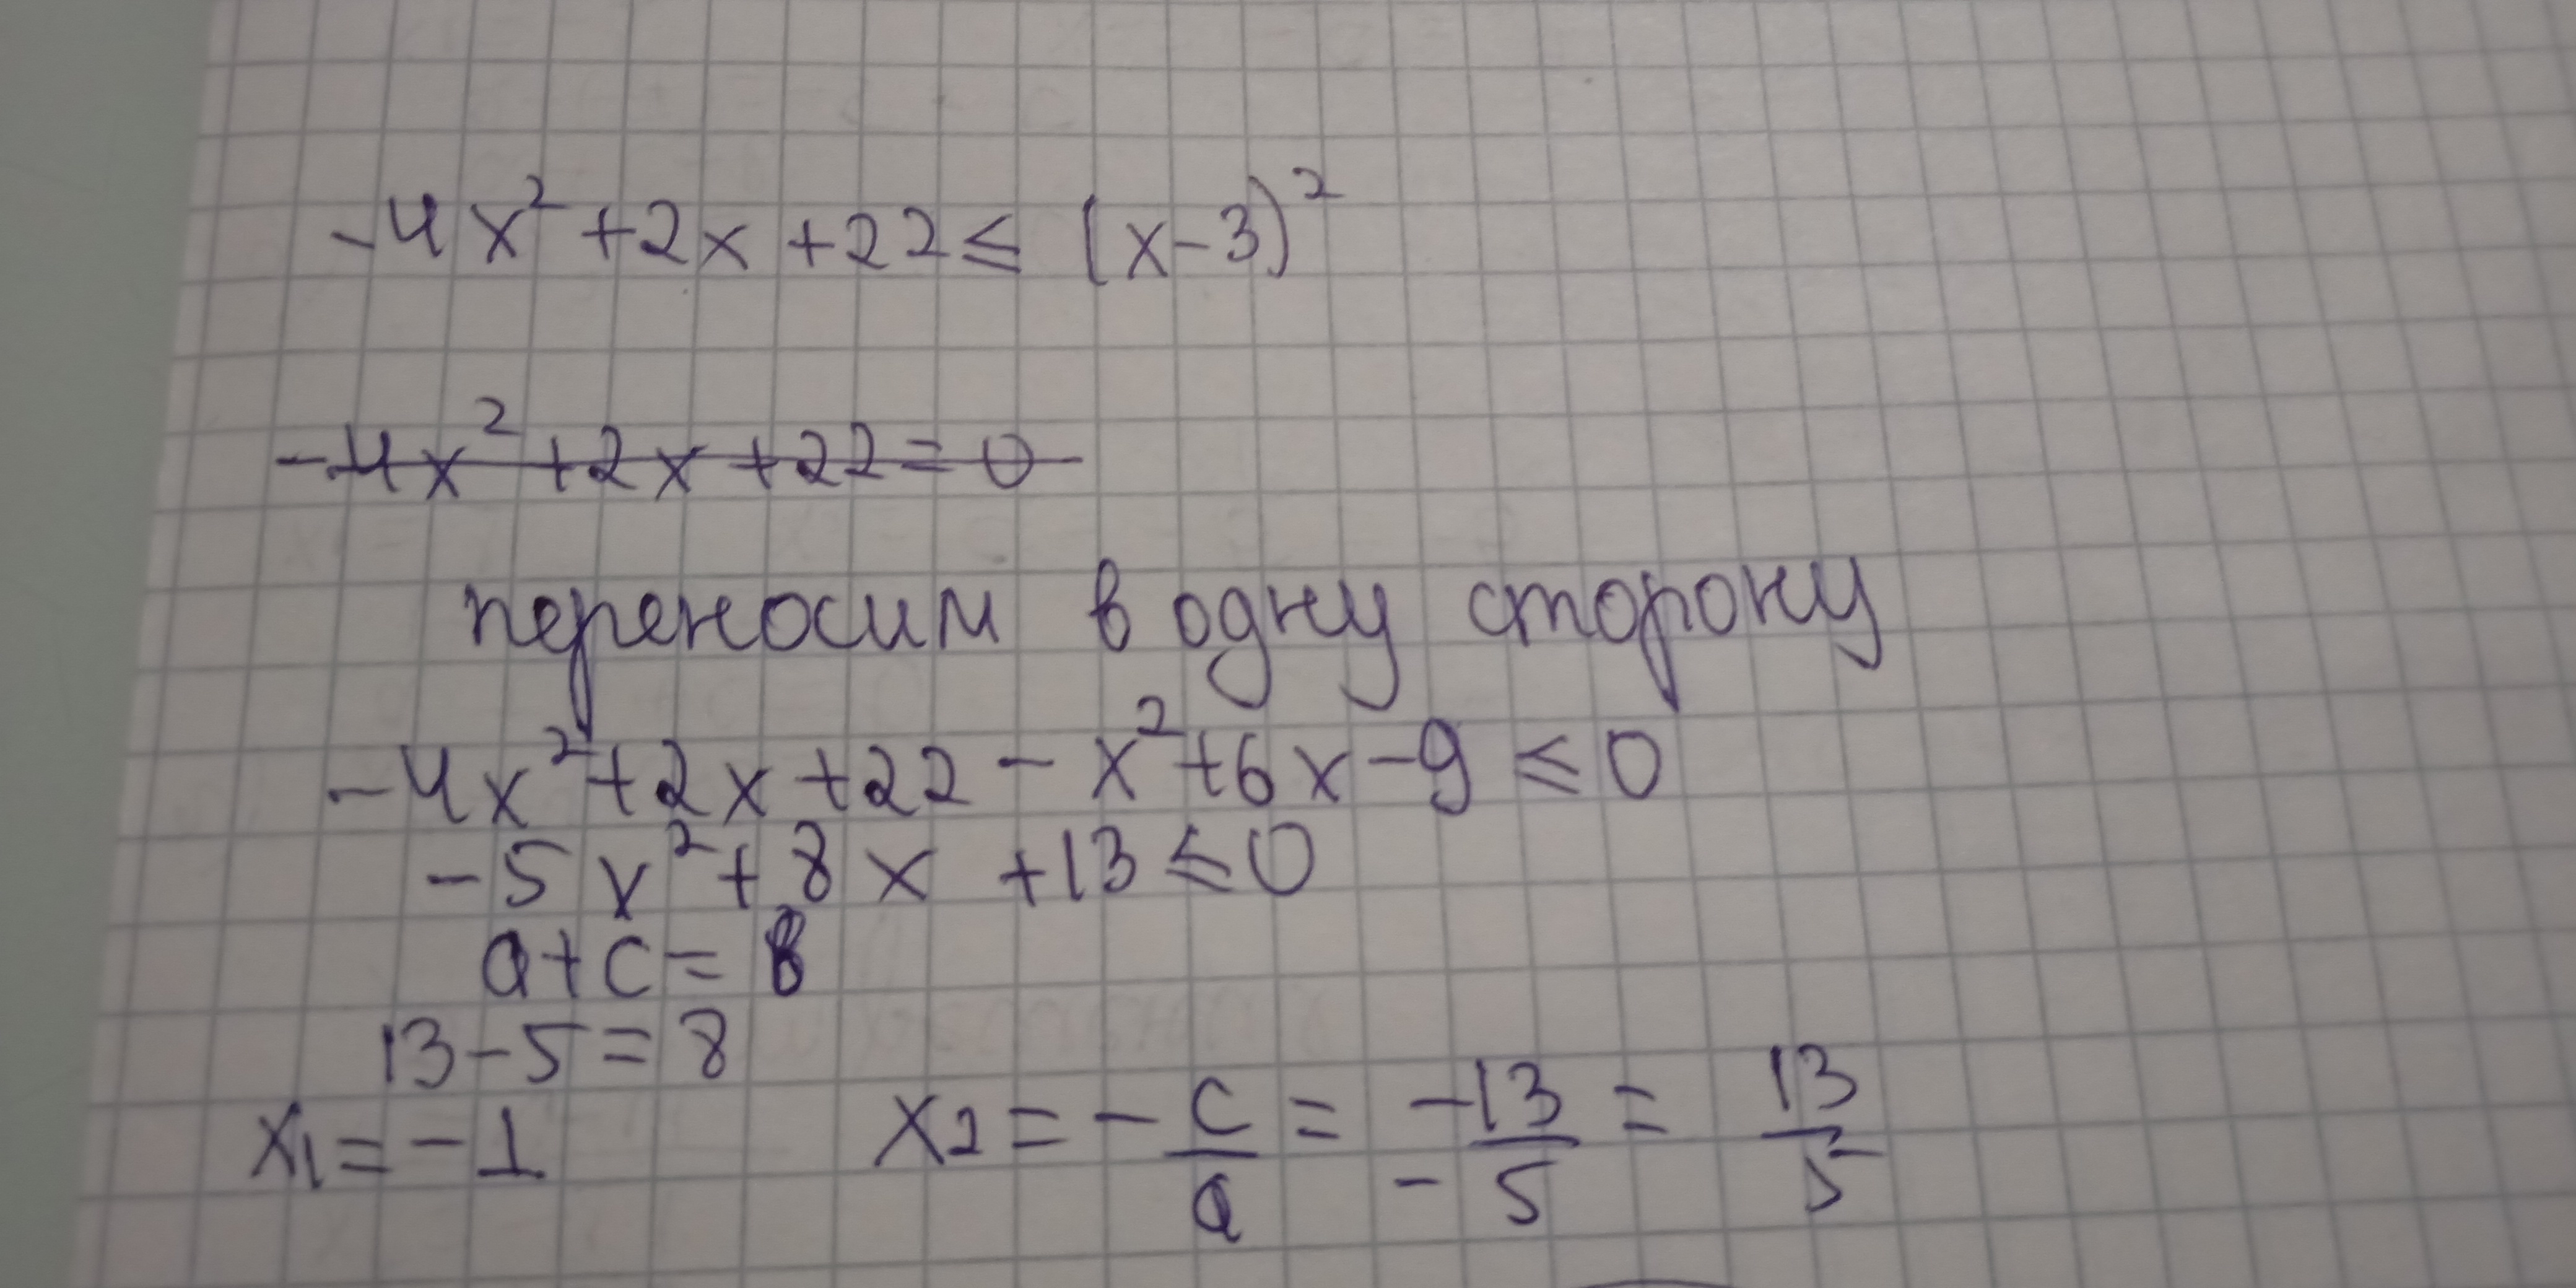 -4x² +2x +22 ≤ (x-3)²
-4x² +2x +22 = 0
переносим в одну сторону
-4x² +2x +22 - x² +6x -9 ≤ 0
-5x² + 8x +13 ≤ 0
a+c = в
13-5 = 8
x₁ = -1 x₂ = - c/a = -13/-5 = 13/5